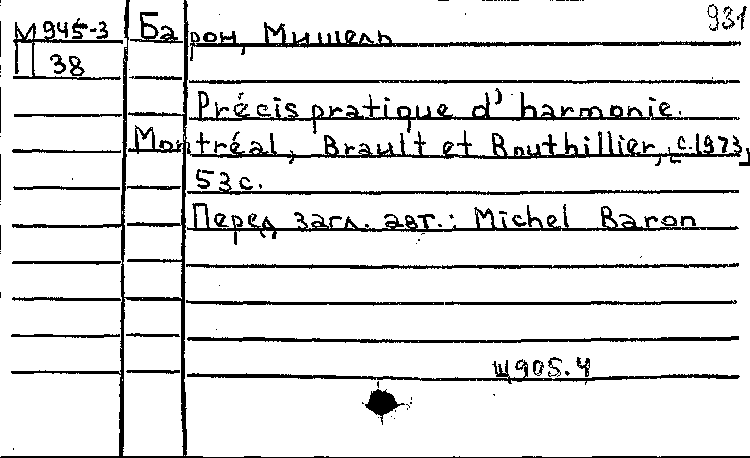 931
М 945-3
38
Барон, Мишель
Précis pratique d'harmonie.
Montréal, Brault et Bouthillier, [c.1973]
53 с.
Перед загл. авт.: Michel Baron
Щ905.4